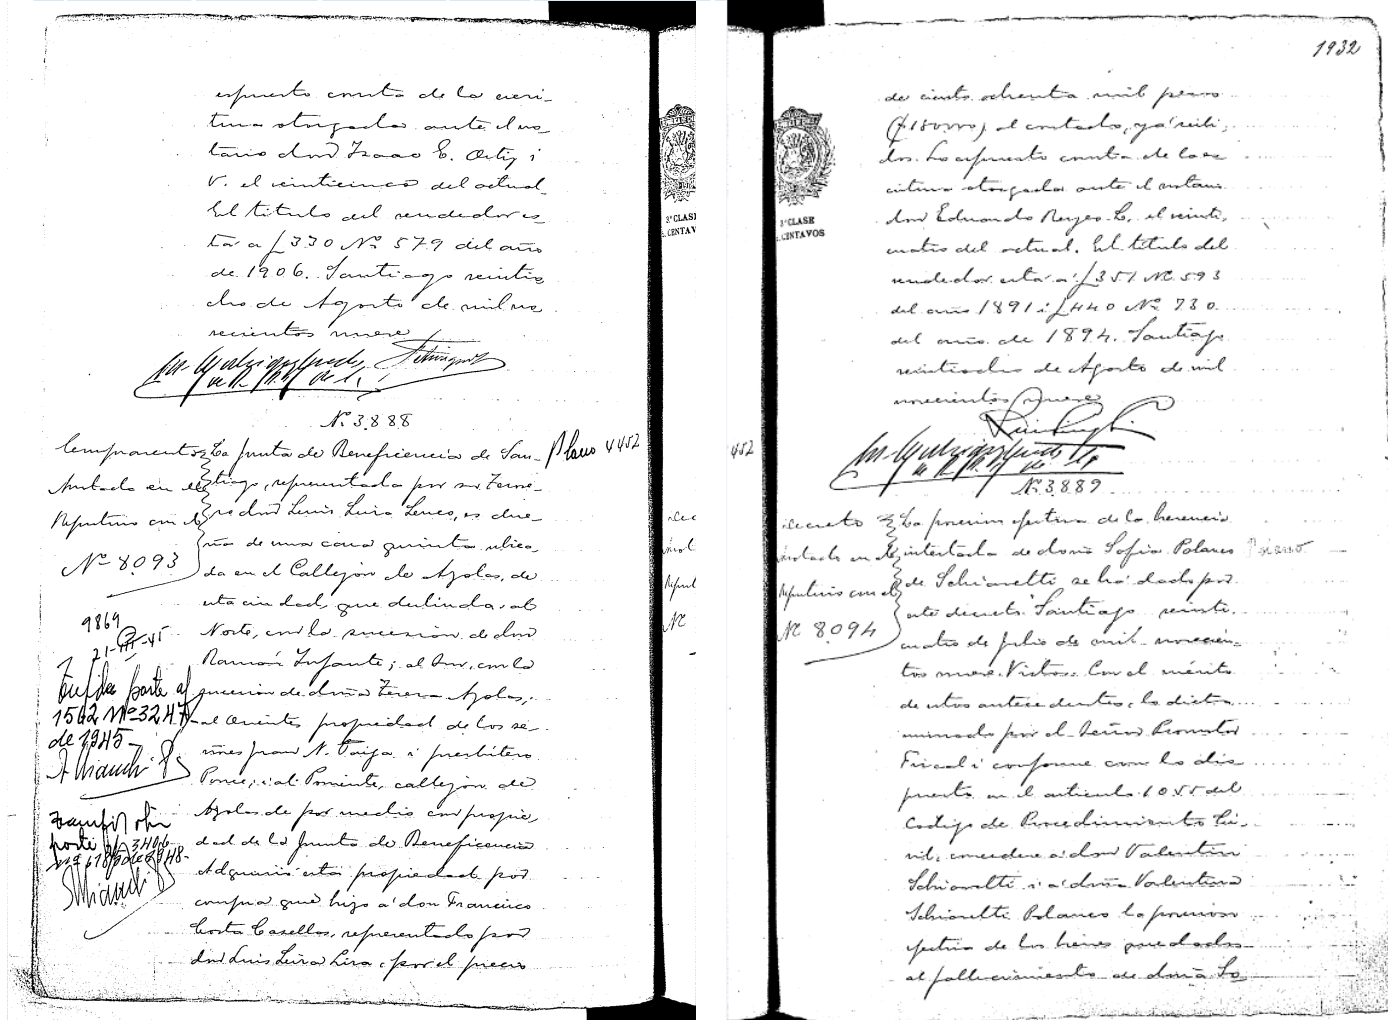 espuesto consta de la escri-
tura otorgada ante el no-
tario don Isaac E. Ortiz i
V. el veinticinco del actual.
El titulo del vendedor es-
tá a f 330 Nº 579 del año
de 1906. Santiago veintio
cho de Agosto de mil no
vecientos nueve
Nº 3888
Compraventa
Anotado en el
Repertorio con el
Nº 8093
9869
21-VIII-45
parte af
1562 Nº 3247
de 1945
parte 3406
de 1948
La Junta de Beneficencia de San-
tiago, representada por su Teso-
rero don Luis Lira Luco, es due-
ña de una casa quinta ubica-
da en el Callejón de Azolas, de
esta ciudad, que deslinda, al
Norte, con la sucesión de don
Ramón Infante; al Sur, con la
sucesion de doña Teresa Azolas;
al Oriente propiedad de los se-
ñores Juan N. i presbítero
Ponce; i al Poniente, callejon de
Azolas de por medio con propie-
dad de la Junta de Beneficencia
Adquirió esta propiedad por
compra que hizo a don Francisco
Costa Casellas, representado por
don Luis Leiva Lira, por el precio
Plano 4452
3ª CLASE
CENTAV
1932
452
3ª CLASE
CENTAVOS
de ciento ochenta mil pesos
($180000) al contado, ya reci-
dos. Lo espuesto consta de la es
critura otorgada ante el notario
don Eduardo Reyes L. el veinti-
cuatro del actual. El titulo del
vendedor está a f 351 Nº 593
del año 1891 i f 440 Nº 730
del año de 1894. Santiago
veintiocho de Agosto de mil
novecientos nueve
Nº 3889
Decreto
Anotado en el
Repertorio con el
Nº 8094
La posesion efectiva de la herencia
intestada de doña Sofia Polanco
de Schiavetti se ha dado por
este decreto "Santiago veinti-
cuatro de julio de mil novecien-
tos nueve. Vistos: Con el mérito
de estos antecedentes, lo dicta-
minado por el Señor Promotor
Fiscal i conforme con lo dis
puesto en el articulo 1055 del
Codigo de Procedimiento Ci-
vil, concedese a don Valentin
Schiavetti i a doña Valentina
Schiavetti Polanco la posesion
efectiva de los bienes quedados
al fallecimiento de doña So